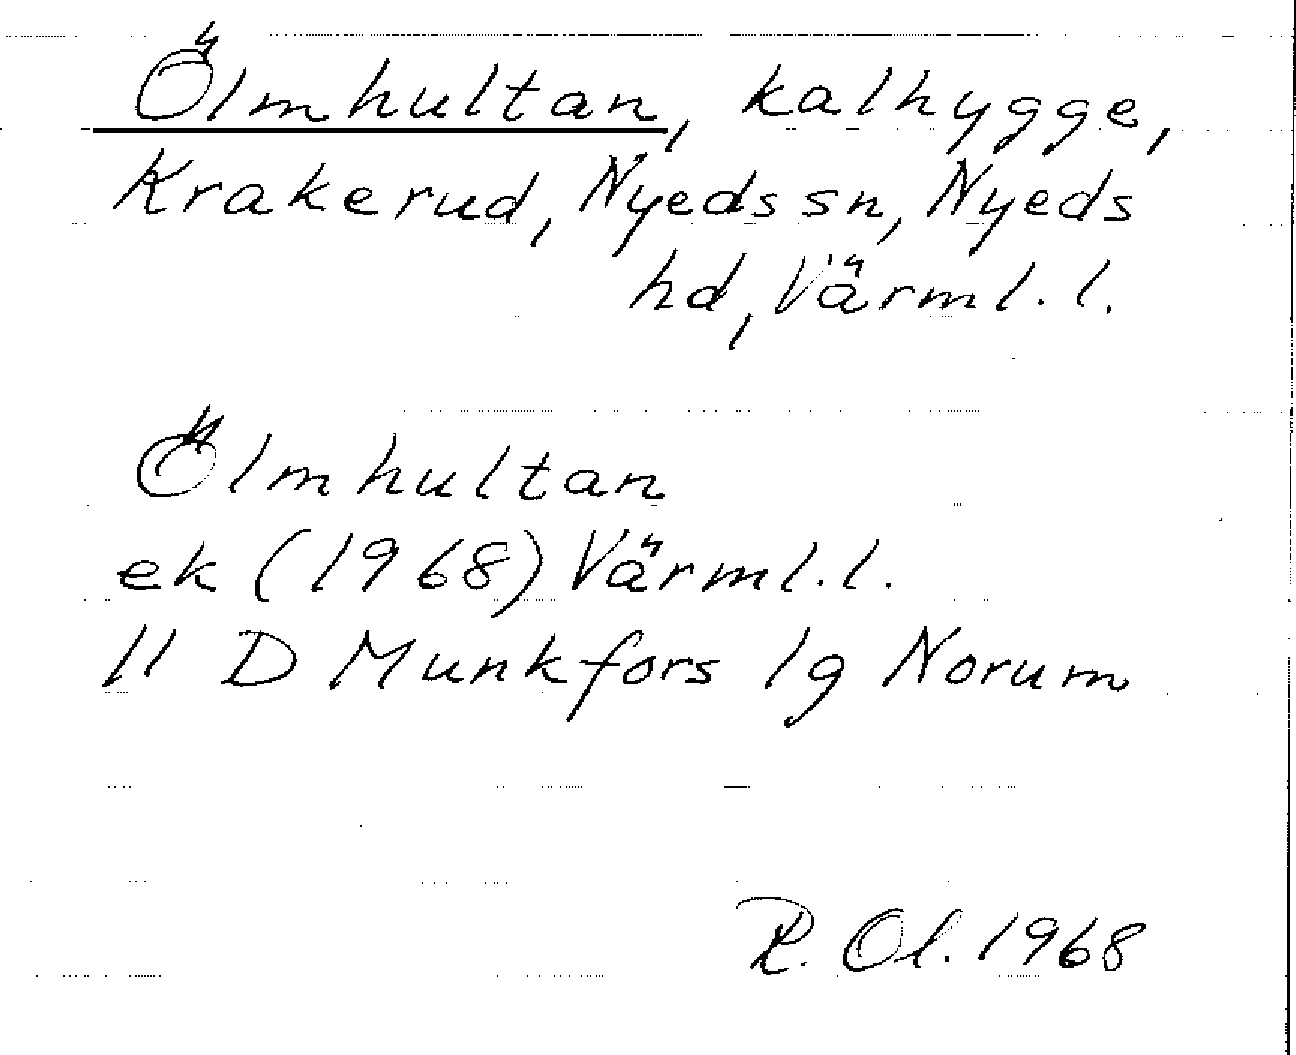 Ölmhultan, kalhygge,
Krakerud, Nyeds sn, Nyeds
hd, Värml. l.
Ölmhultan
ek (1968) Värml. l.
11 D Munkfors lg Norum
R. Ol. 1968